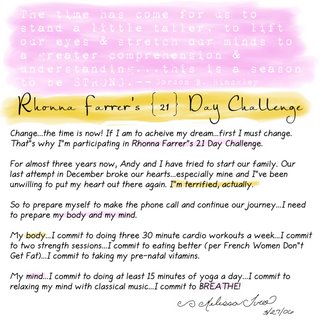 The time has come for us to
stand a little taller, to lift
our eyes & stretch our minds to
a greater comprehension &
understandin-...this is a season
to be STRONG.-- Gordon B. Hinckley
Rhonna Farrer's {21} Day Challenge
Change...the time is now! If I am to acheive my dream...first I must change.
That"s why I"m participating in Rhonna Farrer"s 21 Day Challenge.
For almost three years now, Andy and I have tried to start our family. Our
last attempt in December broke our hearts...especially mine and I"ve been
unwilling to put my heart out there again. I"m terrified, actually.
So to prepare myself to make the phone call and continue our journey...I need
to prepare my body and my mind.
My body...I commit to doing three 30 minute cardio workouts a week...I commit
to two strength sessions...I commit to eating better (per French Women Don"t
Get Fat)...I commit to taking my pre-natal vitamins.
My mind...I commit to doing at least 15 minutes of yoga a day...I commit to
relaxing my mind with classical music...I commit to BREATHE!
Melissa
3/27/06